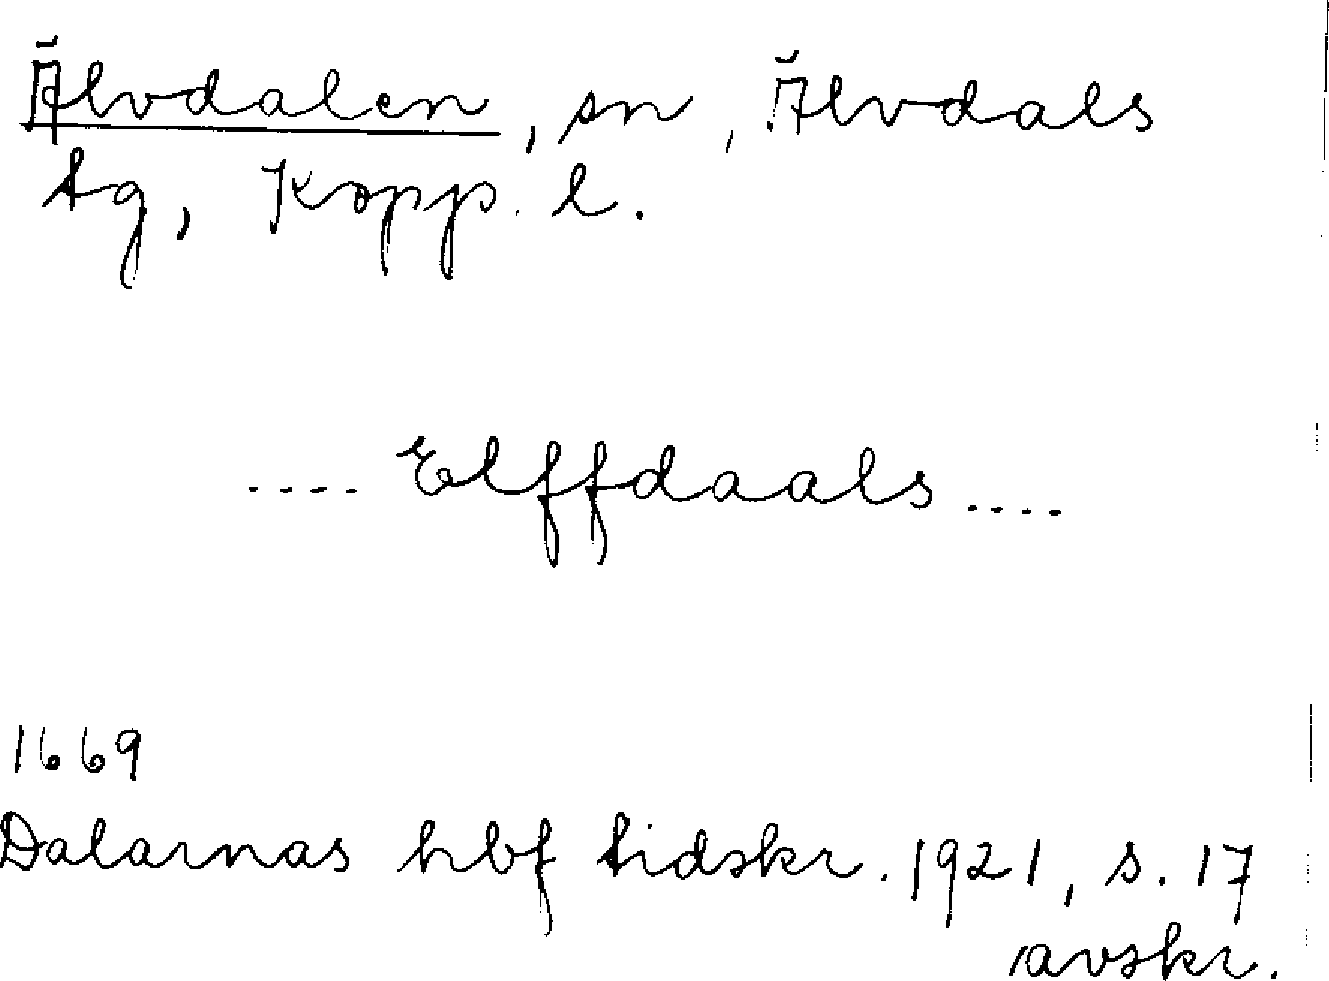 Älvdalen, sn, Älvdals
tg, Kopp. l.
.... Elffdaals ....
1669
Dalarnas hbf tidskr. 1921, s. 17
avskr.